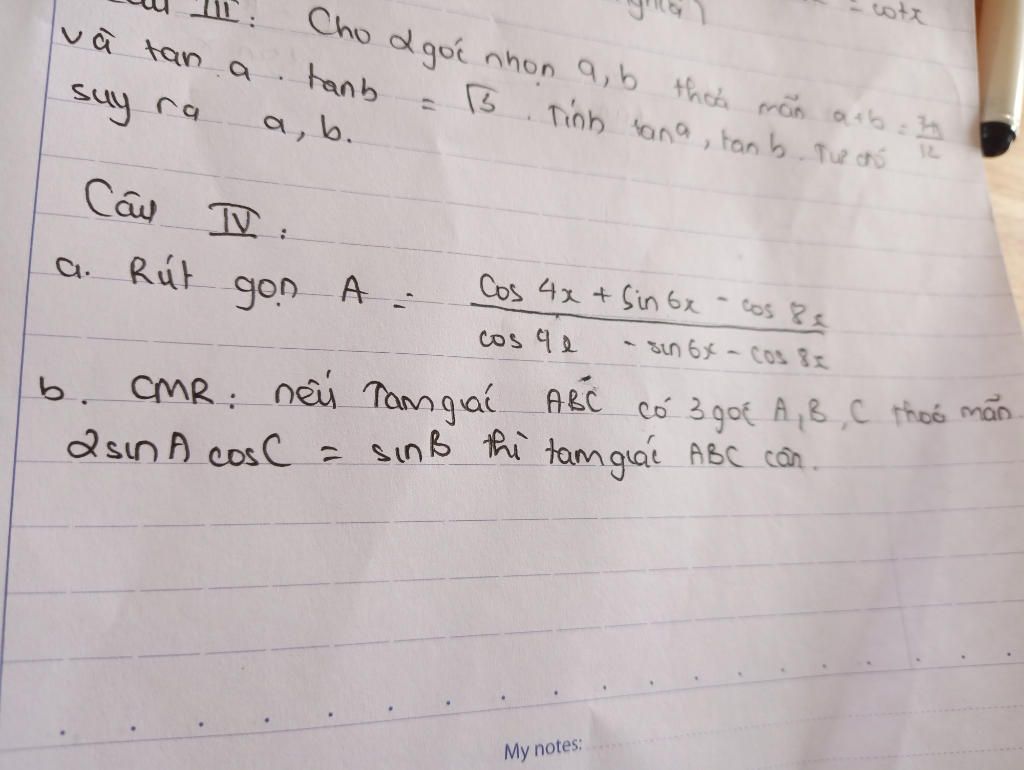 III : Cho 2 góc nhọn a, b thoả mãn a+b = 7π/12
= cotx
và tan a . tan b = √3 . Tính tan a, tan b. Từ đó
suy ra a, b.
Câu IV :
a. Rút gọn A = (cos 4x + sin 6x - cos 8x) / (cos 4x - sin 6x - cos 8x)
b. CMR : nếu Tam giác ABC có 3 góc A, B, C thoả mãn
2 sin A cos C = sin B thì tam giác ABC cân.
My notes: